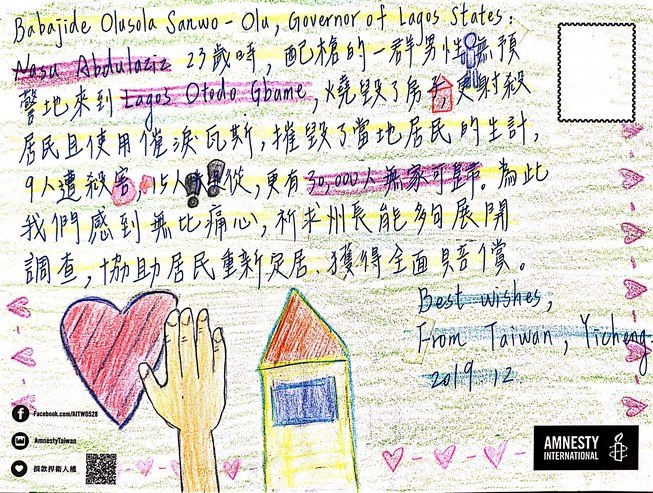 Babajide Olusola Sanwo-Olu, Governor of Lagos States:
Nasu Abdulaziz 23歲時，配槍的一群男性無預
警地來到 Lagos Otodo Gbame，燒毀了房子，更射殺
居民且使用催淚瓦斯，摧毀了當地居民的生計，
9人遭殺害，15人從，更有30,000人無家可歸。為此
我們感到無比痛心，祈求州長能夠展開
調查，協助居民重新定居、獲得全面賠償。
Best wishes,
From Taiwan, Yicheng
2019 12
Facebook.com/AITWD528
AmnestyTaiwan
捐款捍衛人權
AMNESTY
INTERNATIONAL